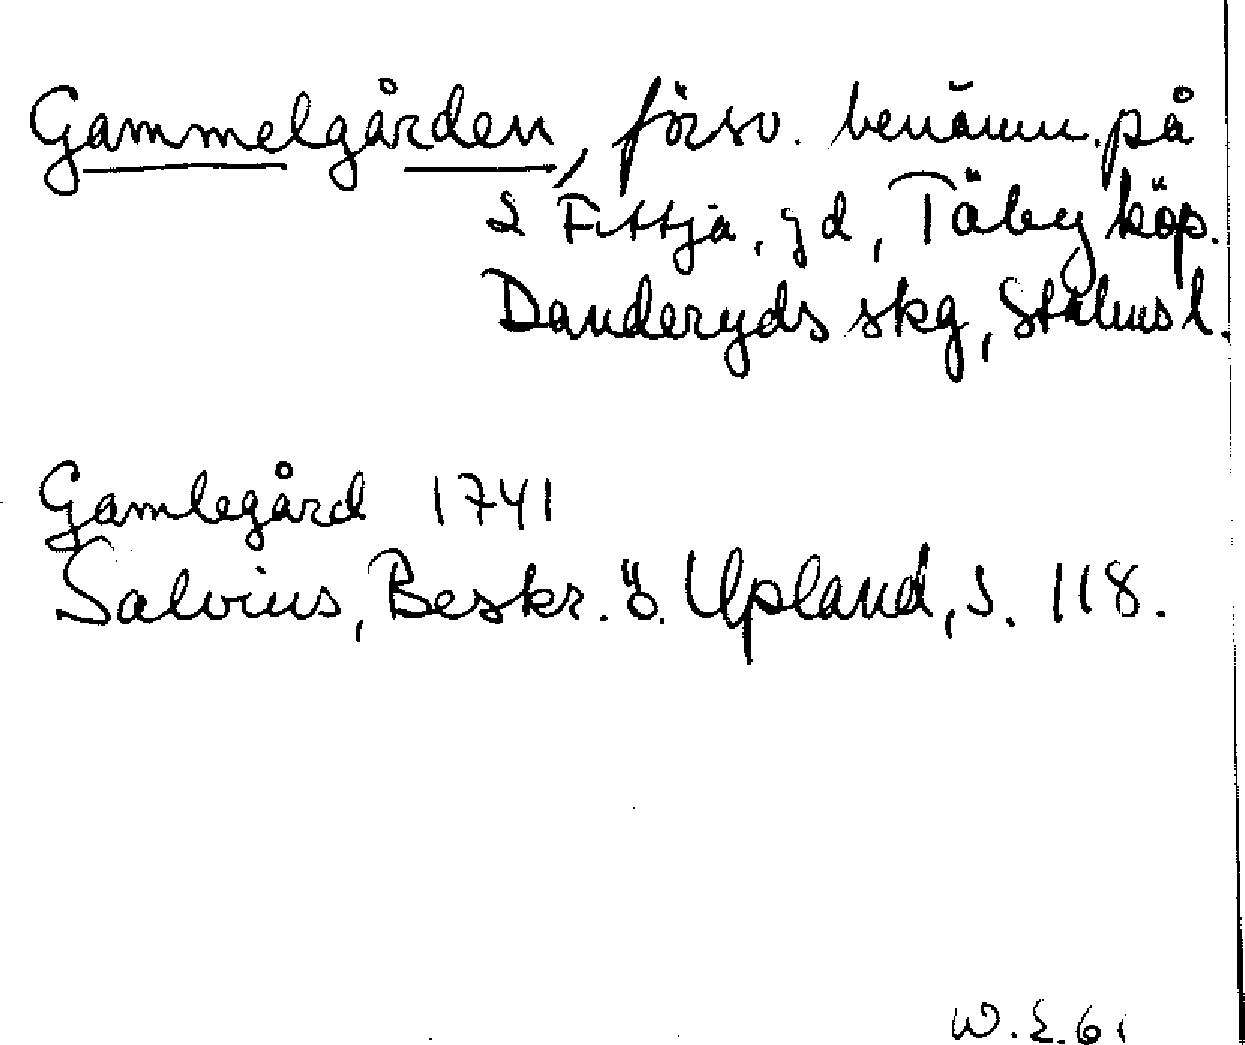 Gammelgården, försv. benämn. på
2 Fittja, gd, Täby köp.
Danderyds skg, Sthlms l.
Gamlegård 1741
Salvius, Beskr. ö. Upland, S. 118.
W.E. 61